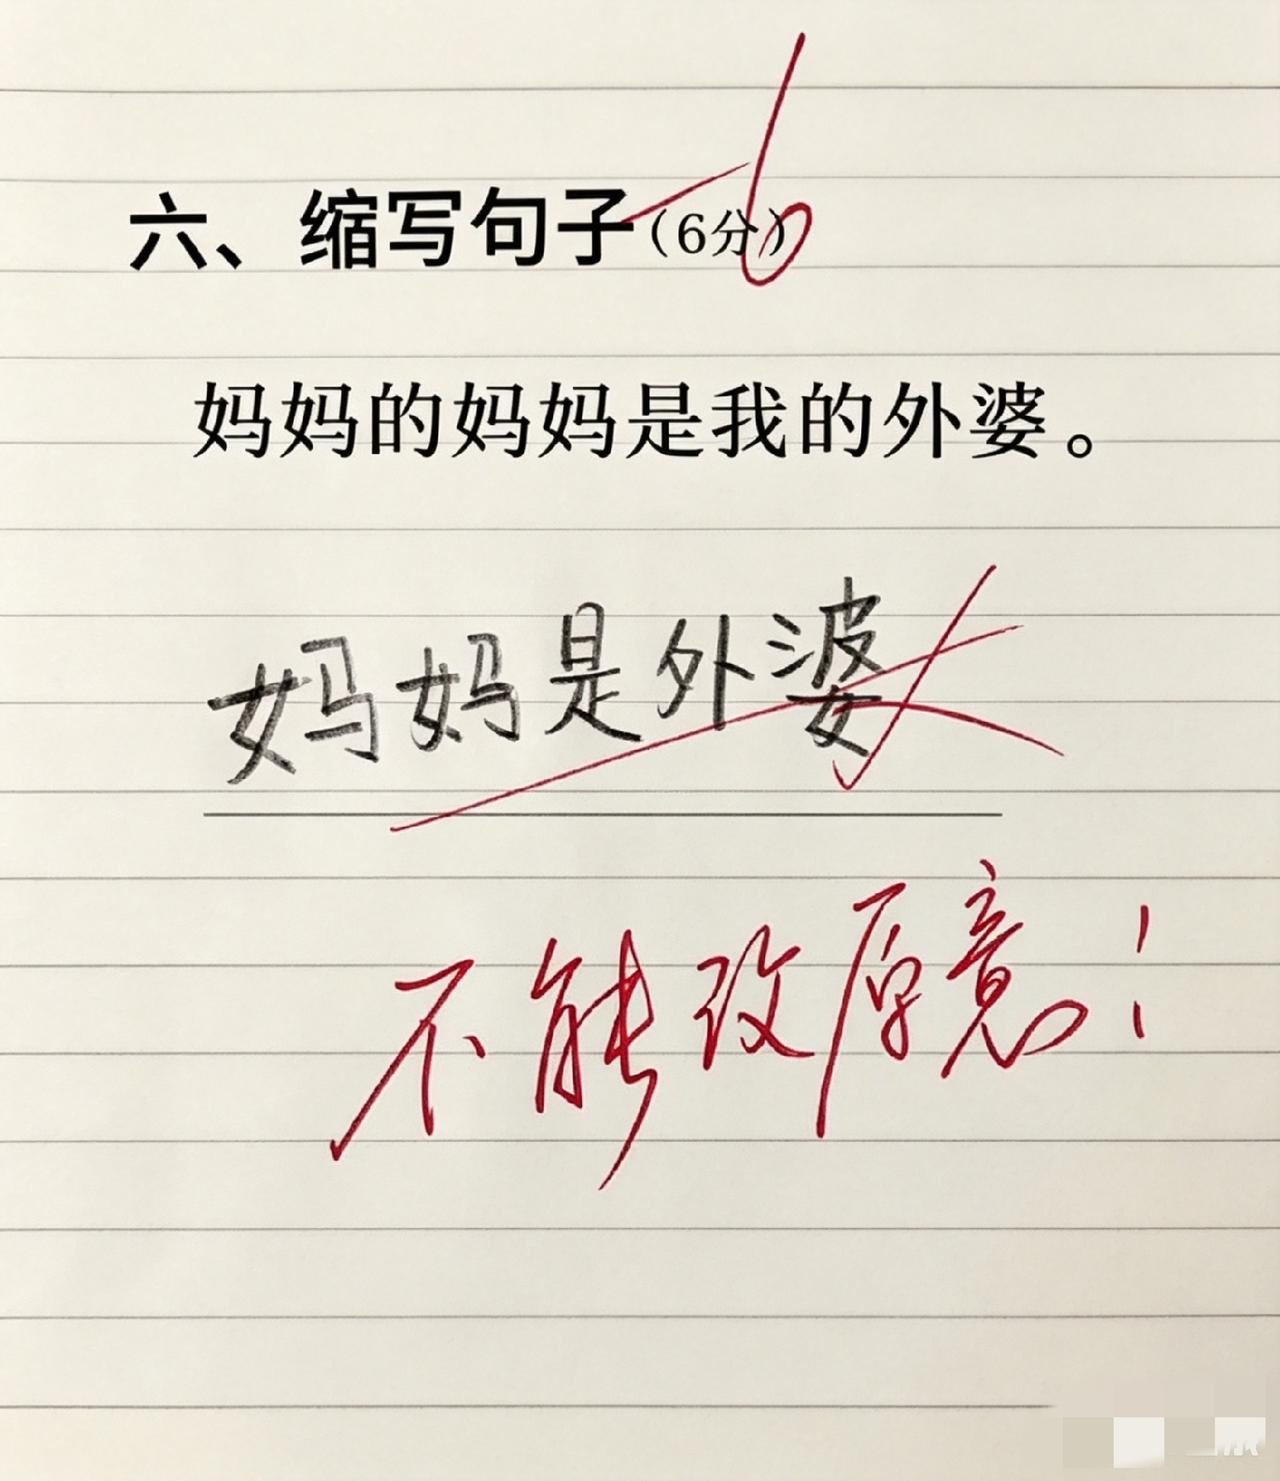 六、缩写句子（6分） -6
妈妈的妈妈是我的外婆。
妈妈是外婆
不能改原意！